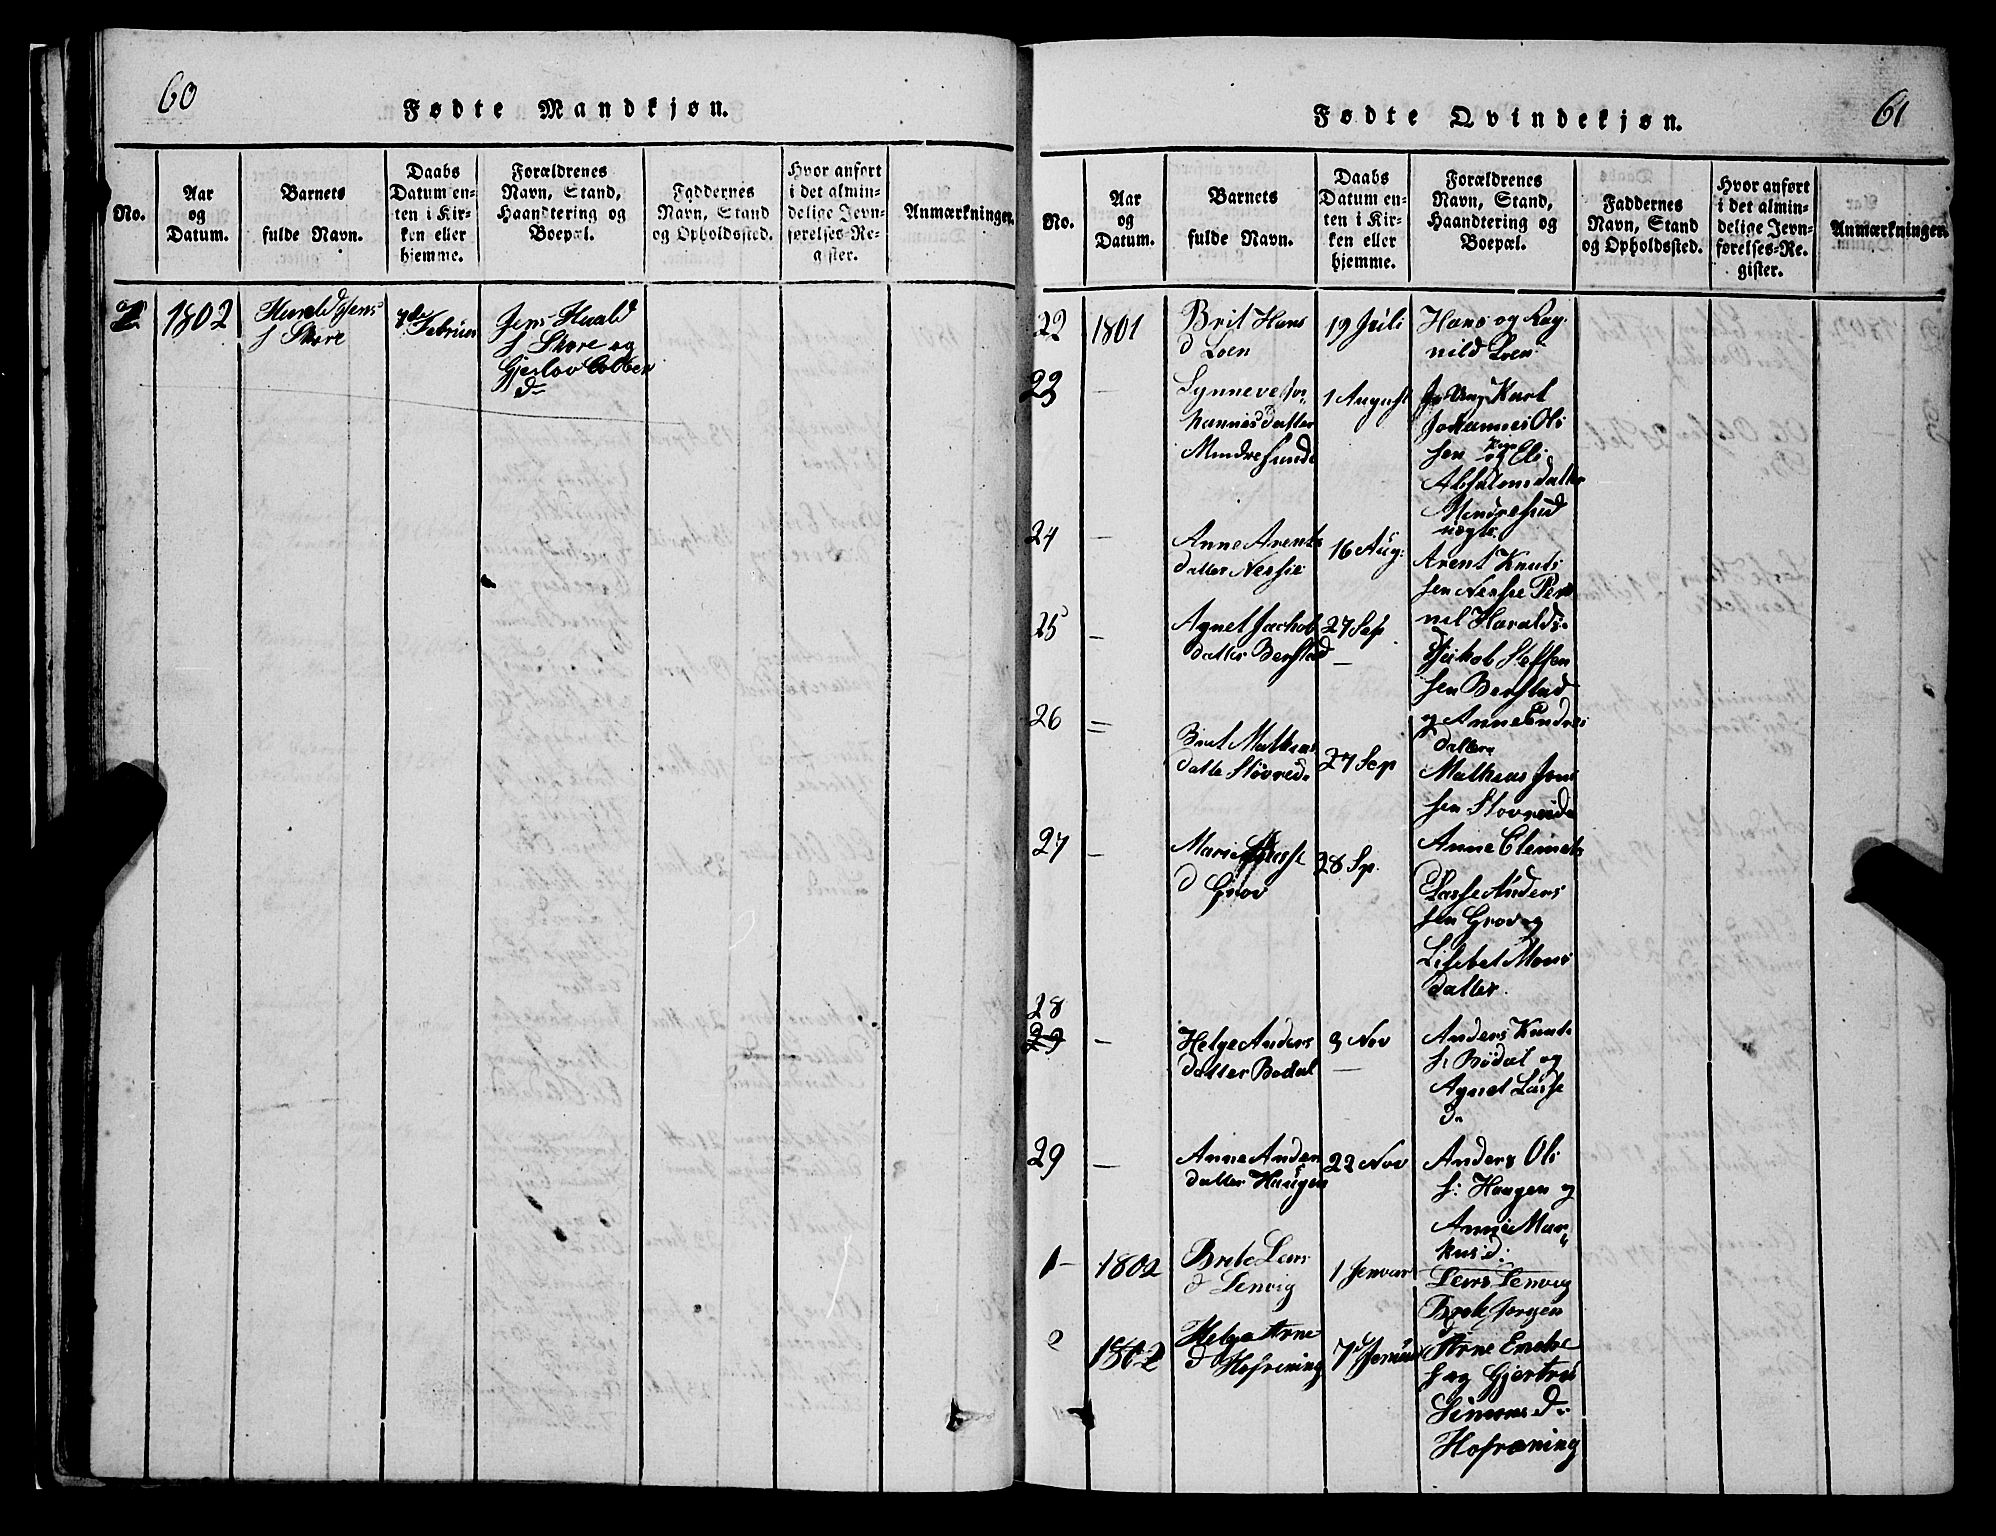 60
Fødte Mandkjøn.
No.
Aar
og
Datum.
Barnets
fulde Navn.
Daabs
Datum en-
ten i Kir-
ken eller
hjemme.
Forældrenes
Navn, Stand,
Haandtering og
Boepæl.
Faddernes
Navn, Stand
og Opholdssted.
Hvor anført
i det almin-
delige Jevn-
førelses-Re-
gister.
Anmærkninger.
1802
s Skore
Februar
Jens
s Skore og
61
Fødte Qvindekjøn.
No.
Aar
og
Datum.
Barnets
fulde Navn.
Daabs
Datum en-
ten i Kir-
ken eller
hjemme.
Forældrenes
Navn, Stand,
Haandtering og
Boepæl.
Faddernes
Navn, Stand
og Opholdssted.
Hvor anført
i det almin-
delige Jevn-
førelses-Re-
gister.
Anmærkninger.
22
1801
Brit Hans
d Loen
19 Juli
Hans og Rag-
nild Loen
23
—
Synneve Jo-
hannisdatter
Mindresunde
1 August
Johannes Ols
sen og Eli
Absalonsdatter
Mindresund
24
—
Anne Arents
datter Nessie
16 Aug:
Arent Knuts
sen Nessie Per
nil Haralds-
d
25
—
Agnet Jachob
datter Berstad
27 Sep
—
Jakob Steffen
sen Berstad
og Anne Endres
datter
26
=
Brit Mathias
datte Støvreide
27 Sep
Mathias Jons
sen Stovreide
Anne Clemets
d
27
—
Marie Lasse
d Grov
28 Sp.
Lasse Anders
sen Grov og
Lisebet Mons
datter.
28
29
—
Helge Anders
datter Bodal
3 Nov
—
Anders Knuts
s: Bødal og
Agnet Lasse
d-
29
—
Anne Anders
datter Haugen
22 Nov
Anders Ols
s: Haugen og
Annie Mar-
kus d:
1
1802
Brite Lars
d Lenvig
1 Januar
Lars Lenvig
Brite Jørgen
d
2
1802
Helge Arne
d Hofrening
7 Januar
Arne
s og Gjertru
Simons d-
Hofræning